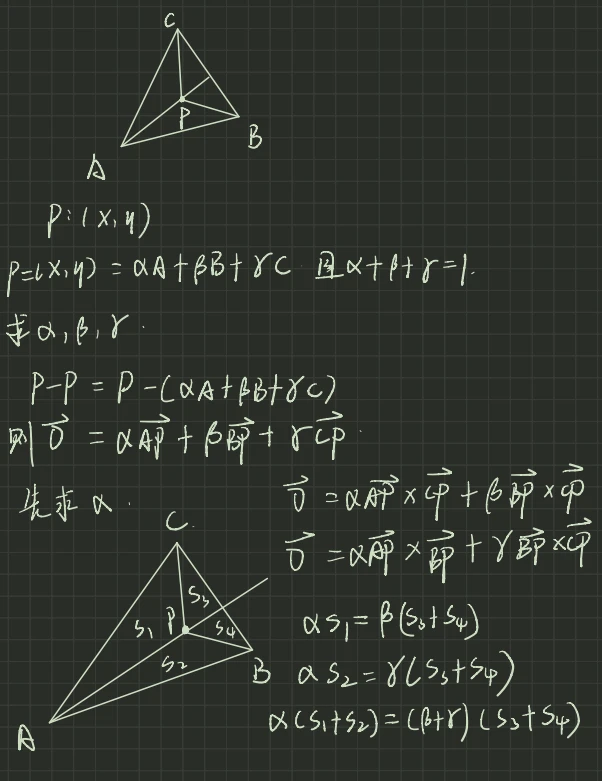 C
P
B
A
P:(x,y)
P=(x,y) = αA+βB+γC 且α+β+γ=1.
求α,β,γ.
P-P = P-(αA+βB+γC)
则 $\vec{0}$ = α$\overrightarrow{AP}$ + β$\overrightarrow{BP}$ + γ$\overrightarrow{CP}$.
先求α.
$\vec{0}$ = α$\overrightarrow{AP}$ × $\overrightarrow{CP}$ + β$\overrightarrow{BP}$ × $\overrightarrow{CP}$
$\vec{0}$ = α$\overrightarrow{AP}$ × $\overrightarrow{BP}$ + γ$\overrightarrow{BP}$ × $\overrightarrow{CP}$
C
S₃
S₁ P S₄
S₂
B
A
αS₁ = β(S₃+S₄)
αS₂ = γ(S₃+S₄)
α(S₁+S₂) = (β+γ)(S₃+S₄)